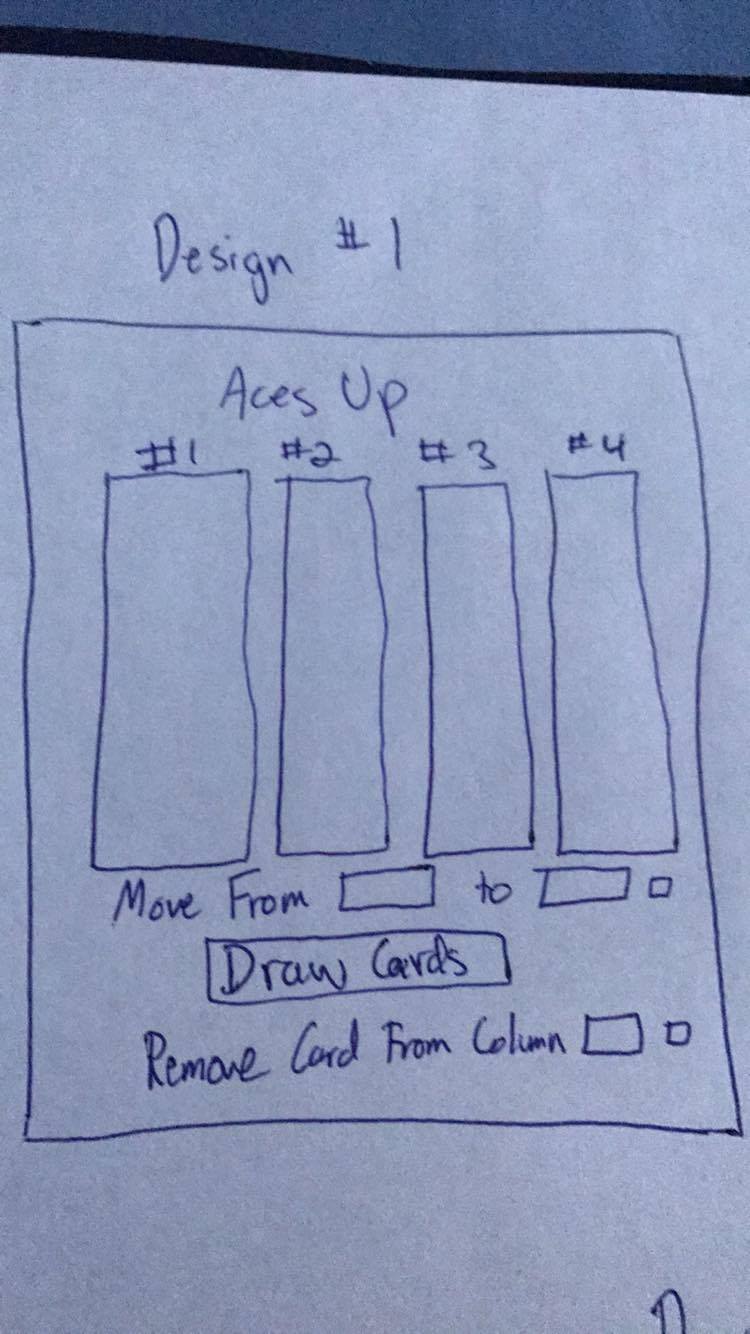 Design #1
Aces Up
#1 #2 #3 #4
Move From to
Draw Cards
Remove Card From Column